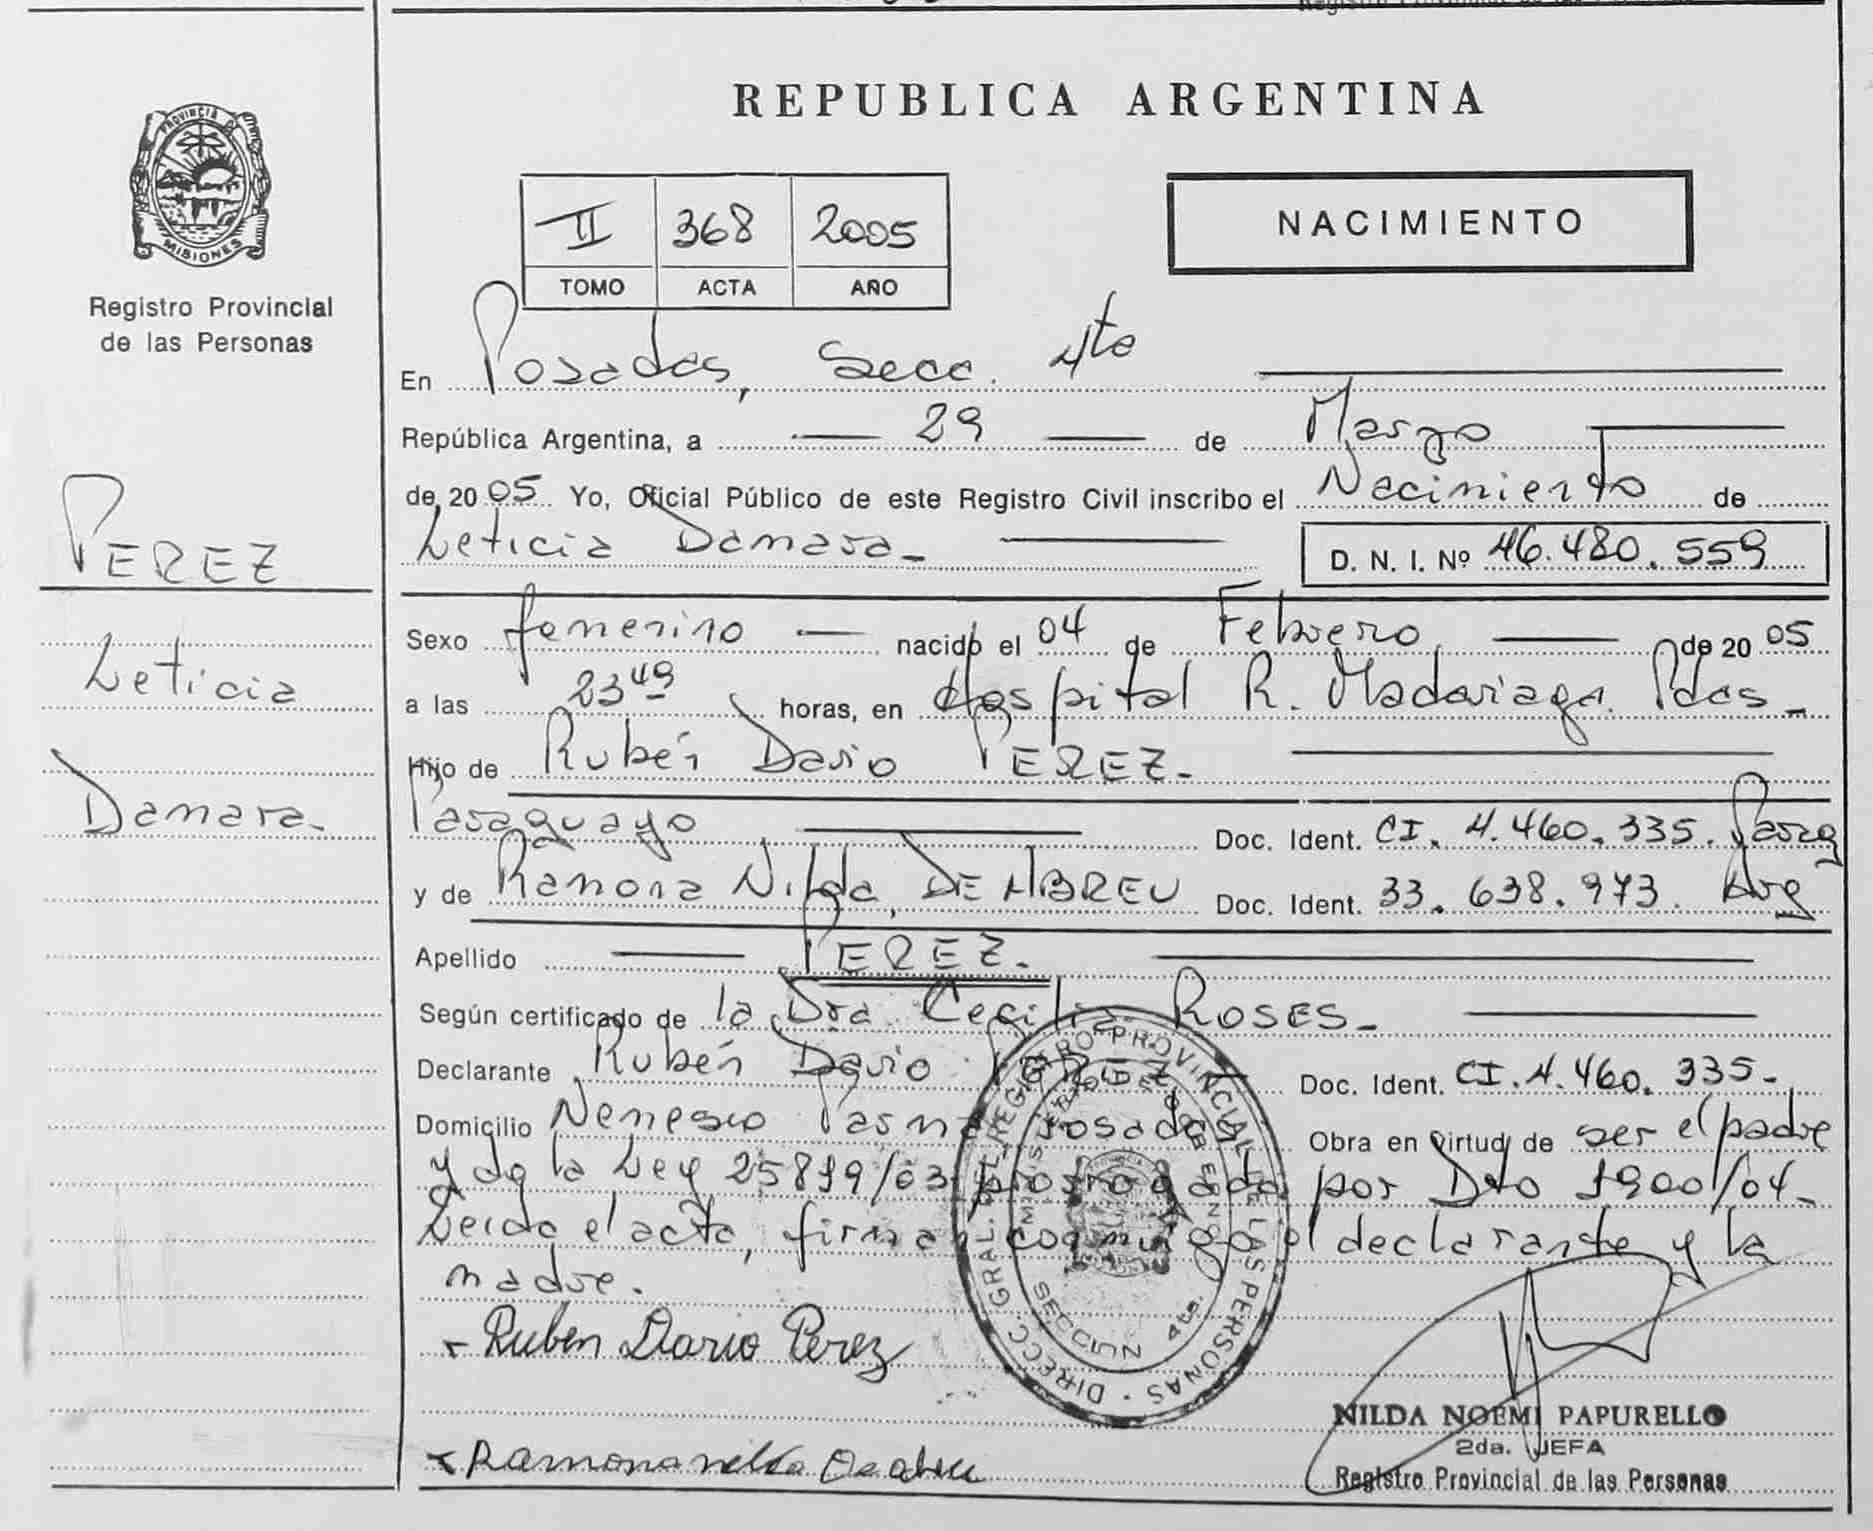 Registro Provincial de las Personas
REPUBLICA ARGENTINA
PROVINCIA DE
MISIONES
Registro Provincial
de las Personas
II 368 2005
TOMO ACTA AÑO
NACIMIENTO
En Posadas, Secc. 4ta
República Argentina, a 29 de Marzo
de 2005 Yo, Oficial Público de este Registro Civil inscribo el Nacimiento de
Leticia Damara
D. N. I. Nº 46.480.559
PEREZ
Leticia
Damara
Sexo femenino nacido el 04 de Febrero de 2005
a las 23 49 horas, en Hospital R. Madariaga. Pdas
Hijo de Rubén Dario PEREZ
Paraguayo Doc. Ident. CI. 4.460.335. Parag
y de Ramona Nilda, DE ABREU Doc. Ident. 33.638.973. Arg
Apellido PEREZ
Según certificado de la Dra Cecilia ROSES
Declarante Rubén Dario PEREZ Doc. Ident. CI. 4.460.335
Domicilio Nemesio Parma Posadas Obra en virtud de ser el padre
y de la Ley 25819/03 prorrogada por Dto 1900/04
Leida el acta, firman conmigo el declarante y la
madre.
Ruben Dario Perez
Ramona nilda De abreu
DIRECC. GRAL. DEL REGISTRO PROVINCIAL DE LAS PERSONAS
SECCION 4ta.
NILDA NOEMI PAPURELLO
2da. JEFA
Registro Provincial de las Personas